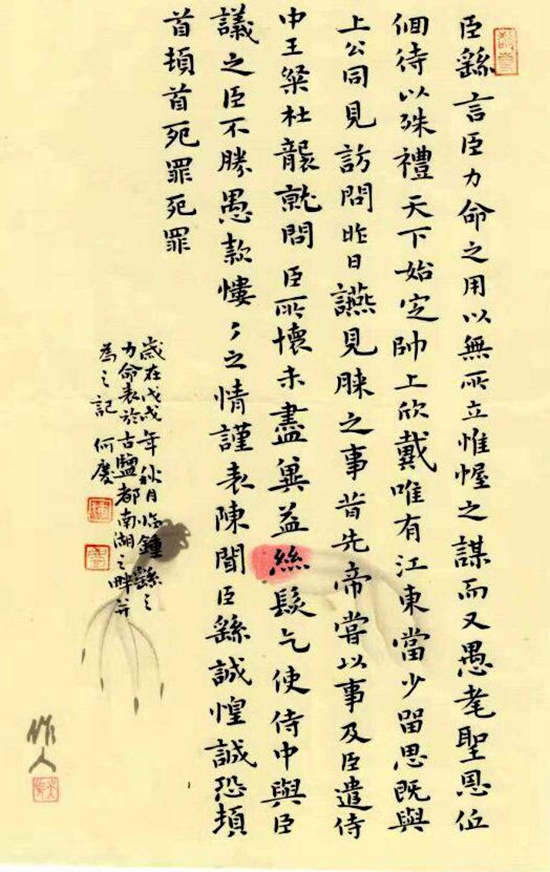 臣繇言臣力命之用以無所立惟幄之謀而又愚耄聖恩位
佪待以殊禮天下始定帥上欣戴唯有江東當少留思既與
上公同見訪問昨日讌見脨之事昔先帝嘗以事及臣遣侍
中王粲杜襲就問臣所懷未盡冀益絲髮乞使侍中與臣
議之臣不勝愚款慺々之情謹表陳聞臣繇誠惶誠恐頓
首頓首死罪死罪
歲在戊戌年秋月臨鍾繇之
力命表於古鹽都南湖之畔并
為之記 何慶
作人